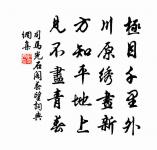 極目千里外
川原繡畫新
方知平地上
見不盡青春
司馬光石閣春望詞典
網集